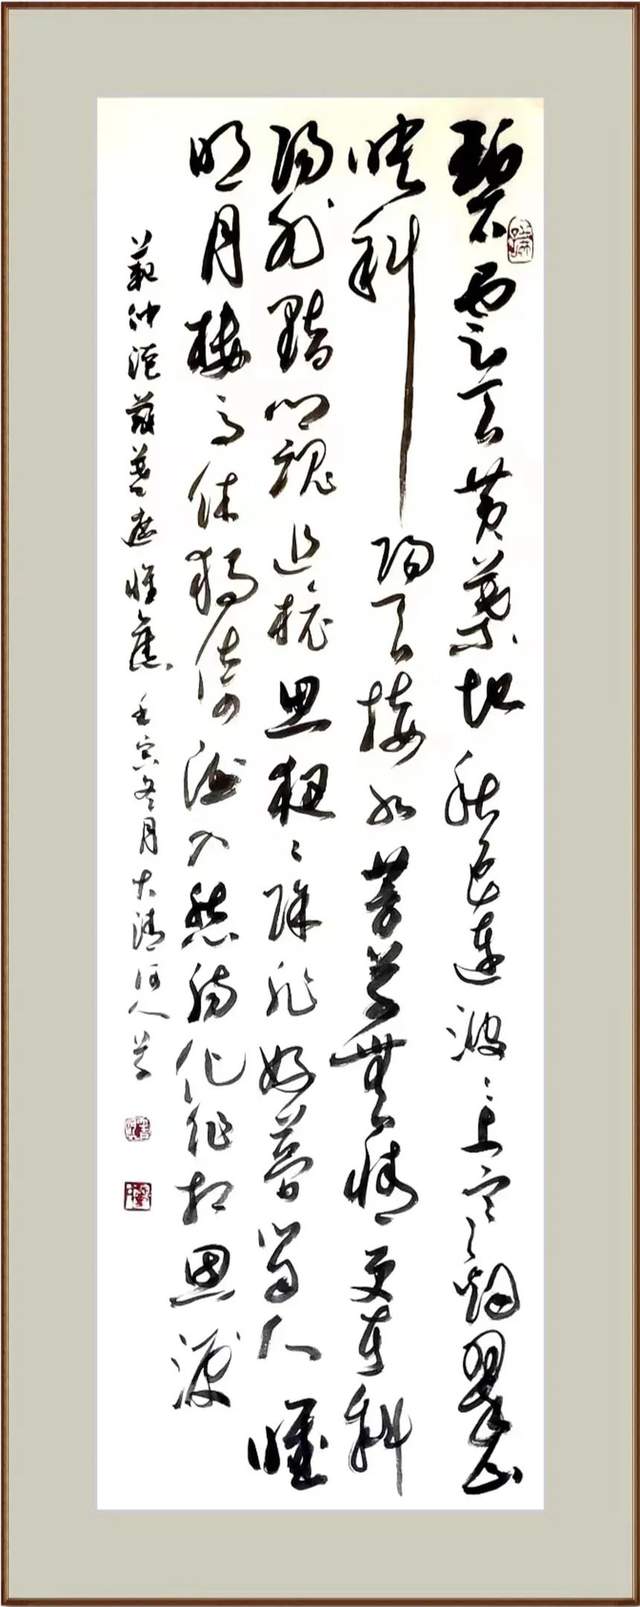 碧雲天黄葉地秋色連波〻上寒烟翠山
映斜陽天接水芳草無情更在斜
陽外黯鄉魂追旅思夜〻除非好夢留人睡
明月樓高休獨倚酒入愁腸化作相思淚
範仲淹蘇幕遮懷舊 壬寅冬月大清河人草